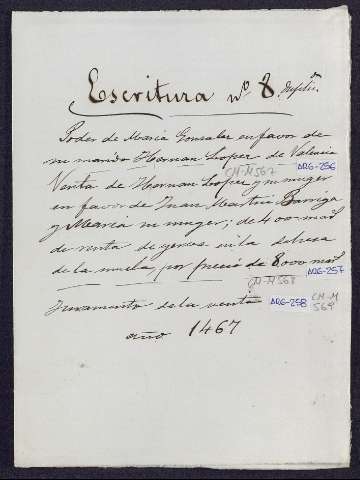 Escritura nº 8
Poder de Maria Gonzalez en favor de
su marido Hernan Lopez de Valencia
CM-M567 ARG-256
Venta de Hernan Lopez y su muger
en favor de Juan Martin Barriga
y Maria su muger; de 400 mrs
de renta de yervas en la dehesa
de la mula, por precio de 8000 mrs
CM-M568 ARG-257
Juramento de la venta ARG-258 CM-M
569
año 1467